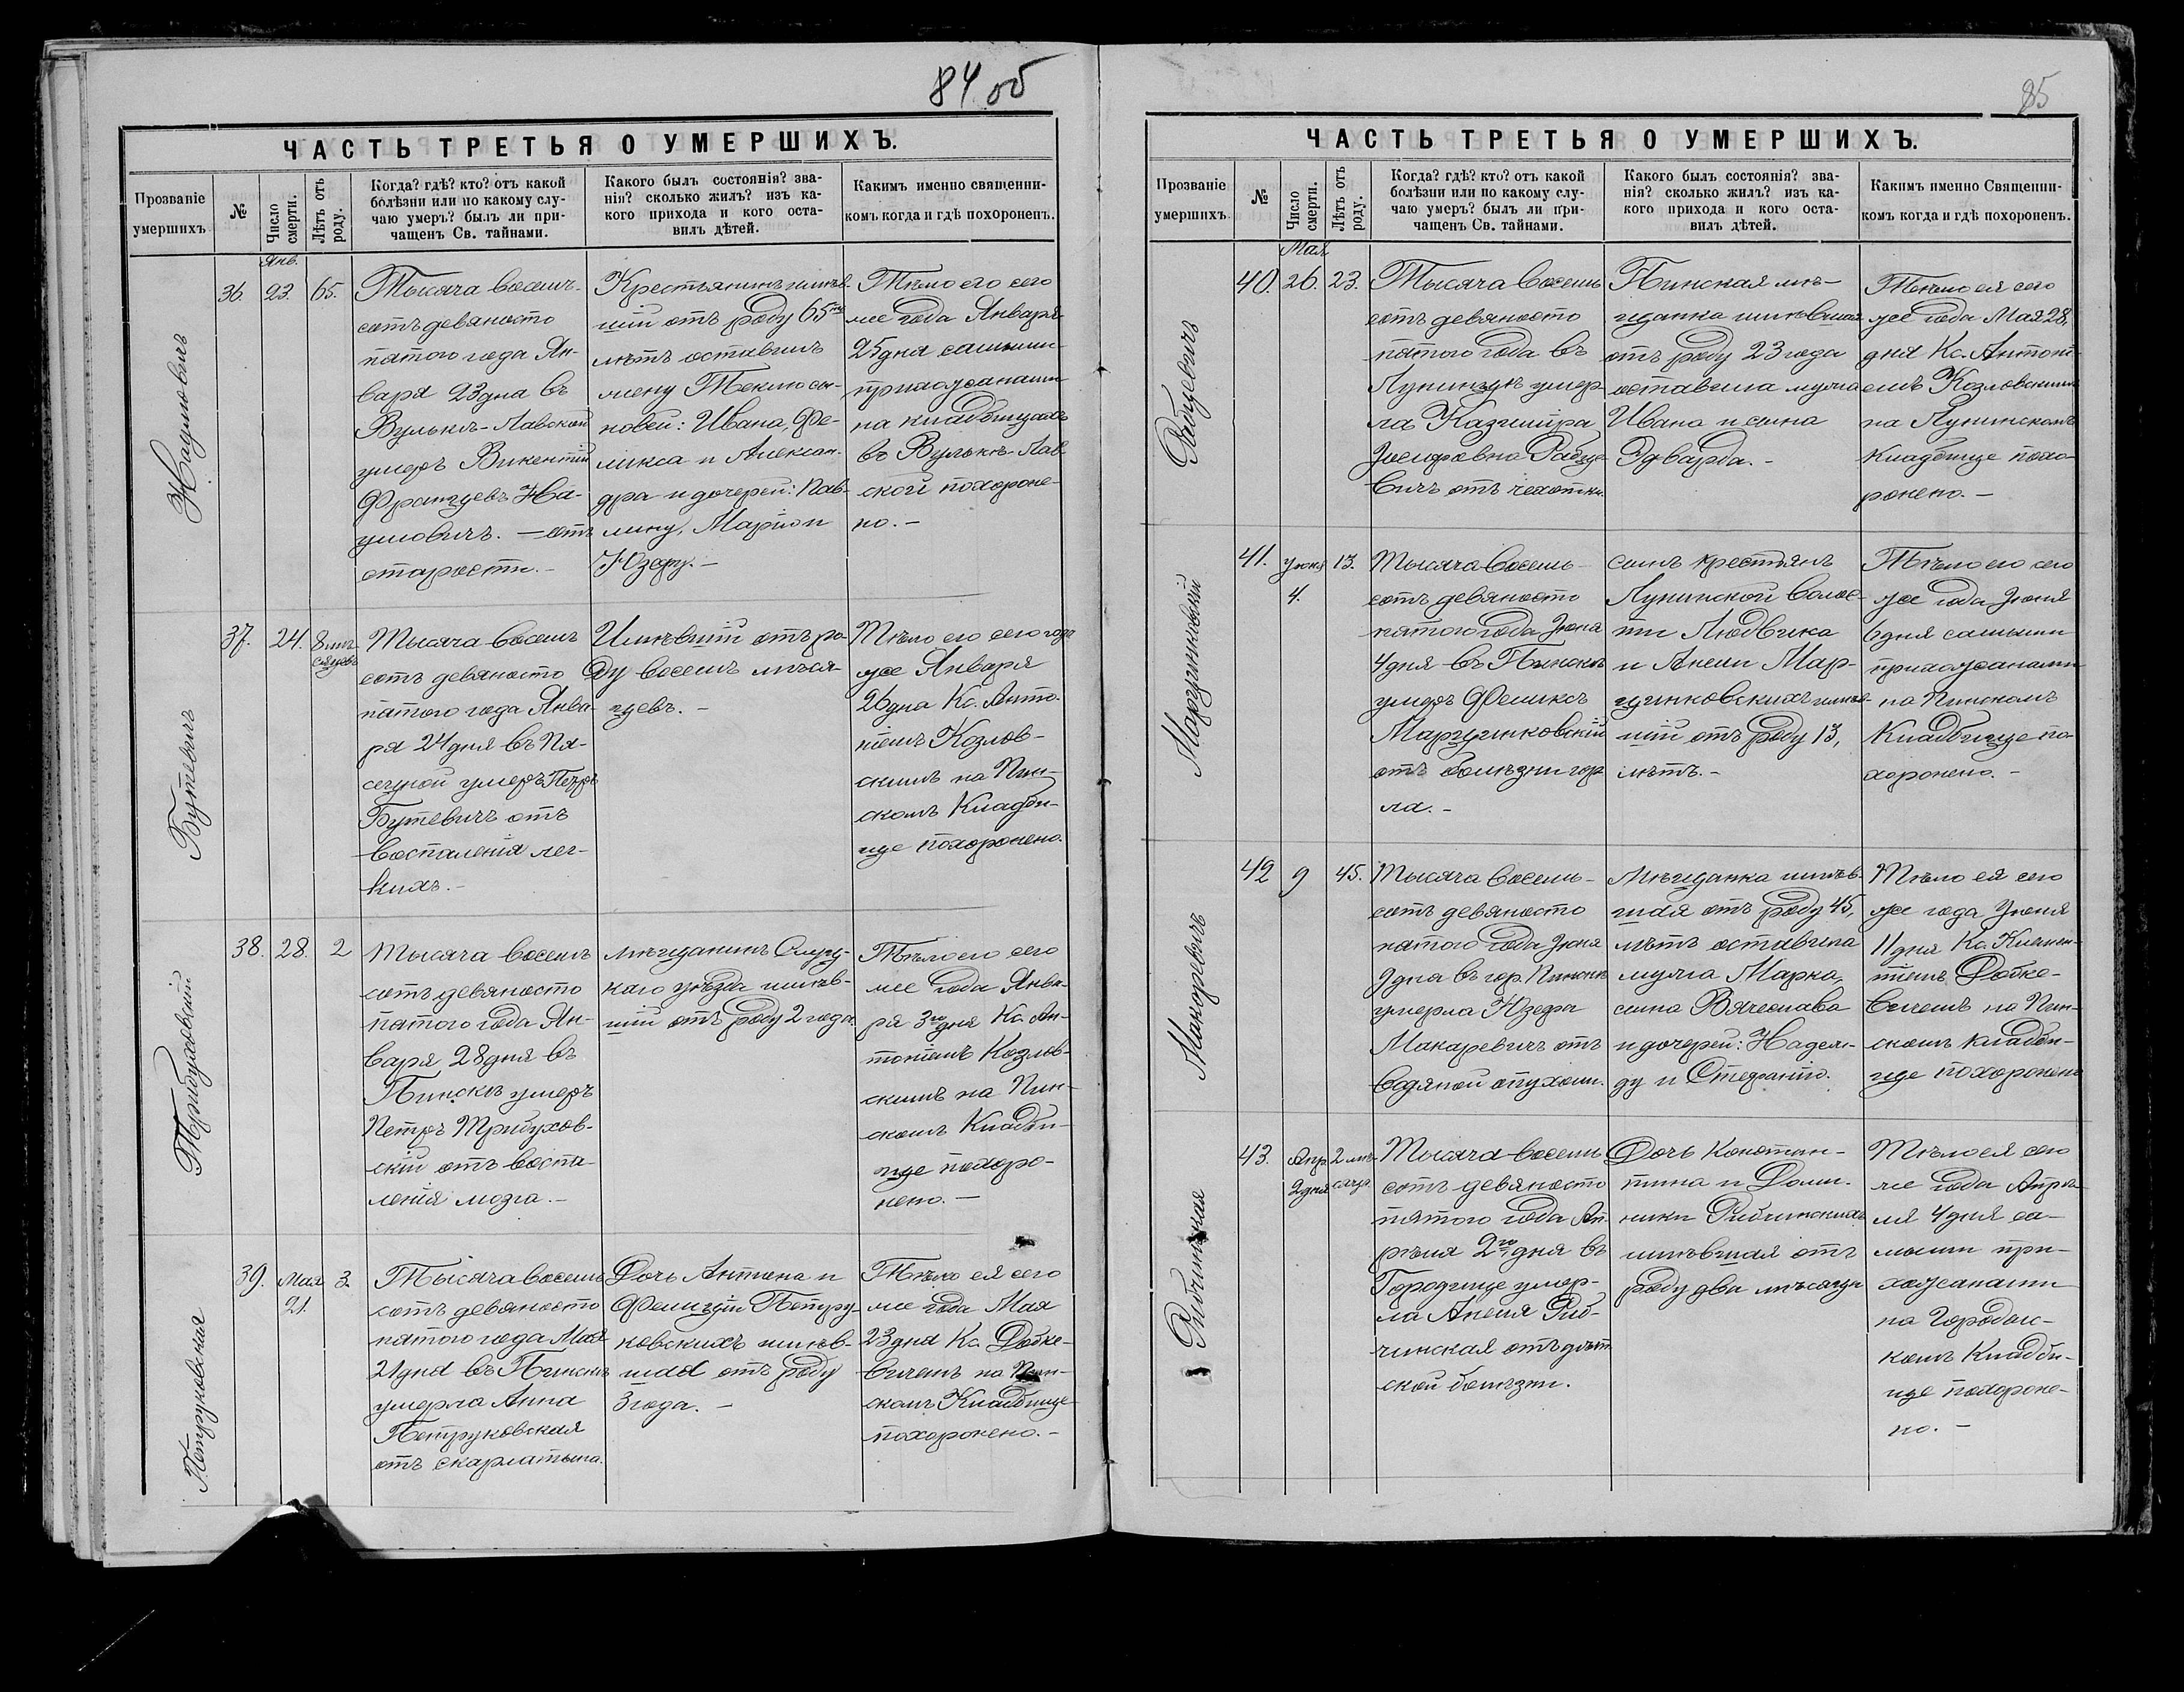 84 об
ЧАСТЬ ТРЕТЬЯ О УМЕРШИХЪ.
Прозваніе
умершихъ
№
Число
смерти.
Лѣтъ отъ
роду.
Когда? гдѣ? кто? отъ какой
болѣзни или по какому слу-
чаю умеръ? былъ ли при-
чащенъ Св. тайнами.
Какого былъ состоянія? зва-
нія? сколько жилъ? изъ ка-
кого прихода и кого оста-
вилъ дѣтей.
Какимъ именно священни-
комъ когда и гдѣ похороненъ.
Наумовичъ
36.
Янв.
23.
65.
Тысяча восемь-
сотъ девяносто
пятого года Ян-
варя 23 дня въ
Вулькѣ-Лавской
умеръ Викентій
Францевъ На-
умовичъ. — отъ
старости. -
Крестьянинъ имѣв-
шій отъ роду 65ть
лѣтъ оставилъ
жену Теклю сы-
новей: Ивана, Фе-
ликса и Алексан-
дра и дочерей: Пав-
лину, Марію и
Юзефу. -
Тѣло его сего
же года Января
25 дня самыми
прихожанами
на кладбищахъ
въ Вулькѣ-Лав
ской похороне-
но. -
Бутевичъ
37.
24.
8 мѣ-
сяцевъ
Тысяча восемь
сотъ девяносто
пятого года Янва-
ря 24 дня въ Пя-
сечной умеръ Петръ
Бутевичъ отъ
воспаленія лег-
кихъ. -
Имѣвшій отъ ро-
ду восемь мѣся-
цевъ. -
Тѣло его сего года
же Января
26 дня Кс. Анто-
ніемъ Козлов-
скимъ на Пин-
скомъ Кладби-
ще похоронено.
Трибуховскій
38.
28.
2
Тысяча восемь
сотъ девяносто
пятого года Ян-
варя 28 дня въ
Пинскѣ умеръ
Петръ Трибухов-
скій отъ воспа-
ленія мозга. -
мѣщанинъ Слуц-
каго уѣзда имѣв-
шій отъ роду 2 года.
Тѣло его сего
же года Янва-
ря 3го дня Кс. Ан-
тоніемъ Козлов-
скимъ на Пин-
скомъ Кладби-
ще похоро-
нено. -
Петруковская
39.
Мая
21.
3.
Тысяча восемь
сотъ девяносто
пятого года Мая
21 дня въ Пинскѣ
умерла Анна
Петруковская
отъ скарлатына.
Дочь Антона и
Фелиціи Петру-
ковскихъ имѣв-
шая отъ роду
3 года. -
Тѣло ея сего
же года Мая
23 дня Кс. Добке-
вичемъ на Пин-
скомъ Кладбище
похоронено. -
85
ЧАСТЬ ТРЕТЬЯ О УМЕРШИХЪ.
Прозваніе
умершихъ
№
Число
смерти.
Лѣтъ отъ
роду.
Когда? гдѣ? кто? отъ какой
болѣзни или по какому слу-
чаю умеръ? былъ ли при-
чащенъ Св. тайнами.
Какого былъ состоянія? зва-
нія? сколько жилъ? изъ ка-
кого прихода и кого оста-
вилъ дѣтей.
Какимъ именно Священни-
комъ когда и гдѣ похороненъ.
Рабцевичъ
40.
Мая
26.
23.
Тысяча восемь
сотъ девяносто
пятого года въ
Лунинцѣ умер-
ла Казиміра
Іосифовна Рабце-
вичъ отъ чехотки.
Пинская мѣ-
щанка имѣвшая
отъ роду 23 года
оставила мужа
Ивана и сына
Эдварда. -
Тѣло ея сего
же года Мая 28,
дня Кс. Антоні-
емъ Козловскимъ
на Лунинскомъ
кладбище похо-
ронено. -
Марцинковскій
41.
Іюня
4.
13.
Тысяча восемь-
сотъ девяносто
пятого года Іюня
4 дня въ Пинскѣ
умеръ Феликсъ
Марцинковскій
отъ болѣзни гор
ла. -
сынъ крестьянъ
Лунинской волос-
ти Людвика
и Анели Мар-
цинковскихъ имѣв-
шій отъ роду 13,
лѣтъ. -
Тѣло его сего
же года Іюня
6 дня самыми
прихожанами
на Пинскомъ
Кладбище по-
хоронено. -
Макаревичъ
42
9
45.
Тысяча восемь-
сотъ девяносто
пятого года Іюня
9 дня въ гор. Пинскѣ
умерла Юзефа
Макаревичъ отъ
водяной опухоли.
Мѣщанка имѣв-
шая отъ роду 45,
лѣтъ оставила
мужа Марка,
сына Вячеслава
и дочерей: Надеж-
ду и Стефанію.
Тѣло ея сего
же года Іюня
11 дня Кс. Климен-
тіемъ Добке-
вичемъ на Пин-
скомъ кладби-
ще похоронено
Рибчинская
43.
Апр.
2 дня
2 мѣ-
сяца
Тысяча восемь
сотъ девяносто
пятого года Ап-
рѣля 2го дня въ
Городище умер-
ла Анеля Риб-
чинская отъ дѣт-
ской болѣзни.
Дочь Констан-
тина и Доми-
ники Рибчинскихъ
имѣвшая отъ
роду два мѣсяца
Тѣло ея сего
же года Апрѣ-
ля 4 дня са-
мыми при-
хожанами
на Городис-
комъ Кладби-
ще похороне-
но. -